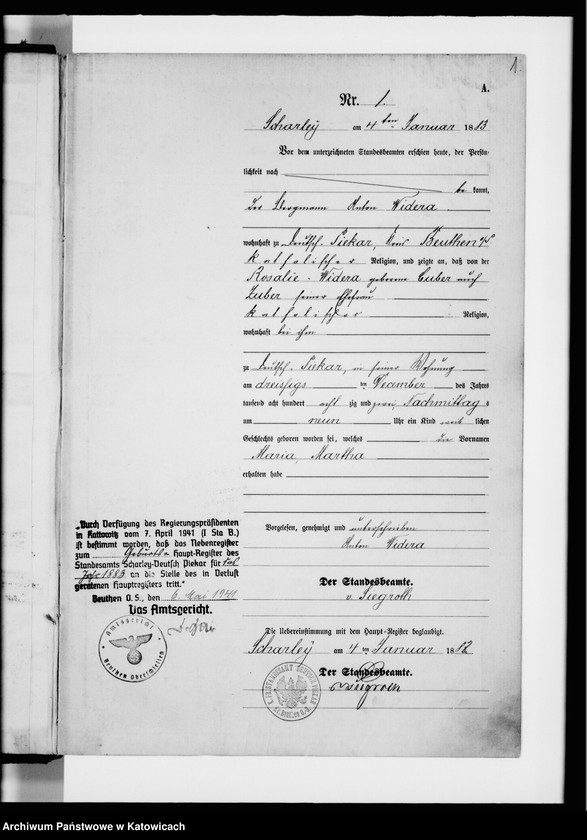 1
A.
Nr. 1.
Scharley am 4ten Januar 1883
Vor dem unterzeichneten Standesbeamten erschien heute, der Persön-
lichkeit nach
be kannt,
der Bergmann Anton Widera
wohnhaft zu Deutsch Piekar, Kreis Beuthen O/S.
katholischer Religion, und zeigte an, daß von der
Rosalie Widera geborene Cuber auch
Zuber seiner Ehefrau
katholischer Religion,
wohnhaft bei ihm
zu Deutsch-Piekar, in seiner Wohnung
am dreissigs ten Dezember des Jahres
tausend acht hundert acht zig und zwei, Nachmittags
um neun Uhr ein Kind weib lichen
Geschlechts geboren worden sei, welches die Vornamen
Maria Martha
erhalten habe
Vorgelesen, genehmigt und unterschrieben
Anton Widera
Der Standesbeamte.
v. Siegroth
Die Uebereinstimmung mit dem Haupt-Register beglaubigt.
Scharley am 4 ten Januar 1883
Der Standesbeamte.
v. Siegroth
„Durch Verfügung des Regierungspräsidenten
in Kattowitz vom 7. April 1941 (I Sta B.)
ist bestimmt worden, daß das Nebenregister
zum Geburts- Haupt-Register des
Standesamts Scharley-Deutsch Piekar für das
Jahr 1883 an die Stelle des in Verlust
geratenen Hauptregisters tritt."
Beuthen O. S., den 6. Mai 1941
Das Amtsgericht.
Amtsgericht
Beuthen Oberschlesien
Archiwum Państwowe w Katowicach